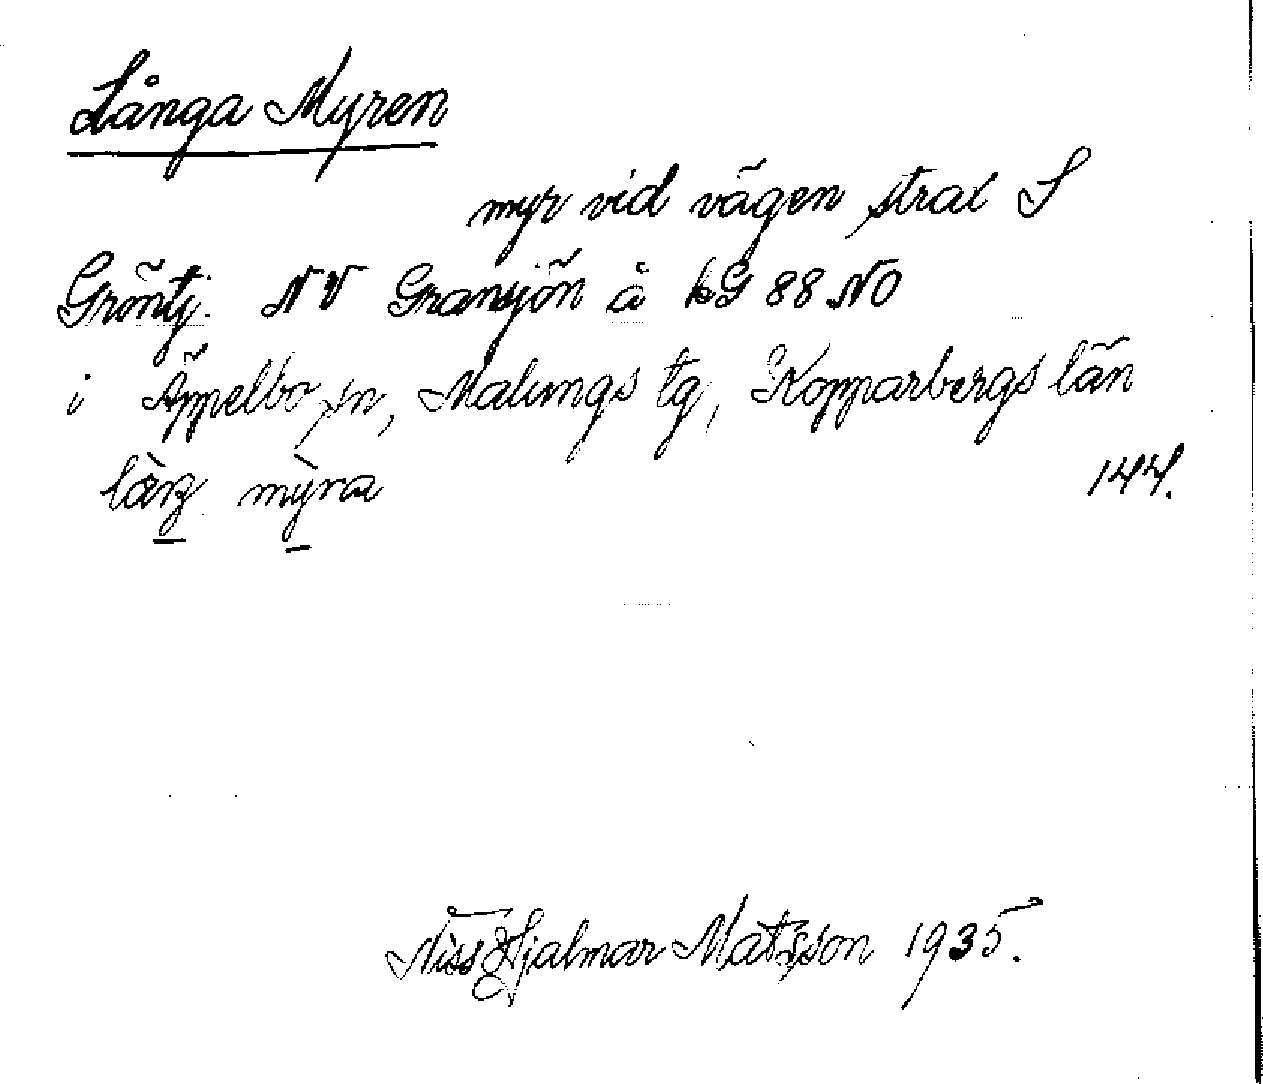 Långa Myren
myr vid vägen strax S
Gröntj. NV Gransjön å bG 88 NO
i Äppelbo sn, Malungs tg, Kopparbergs län
144.
Niss Hjalmar Matsson 1935.